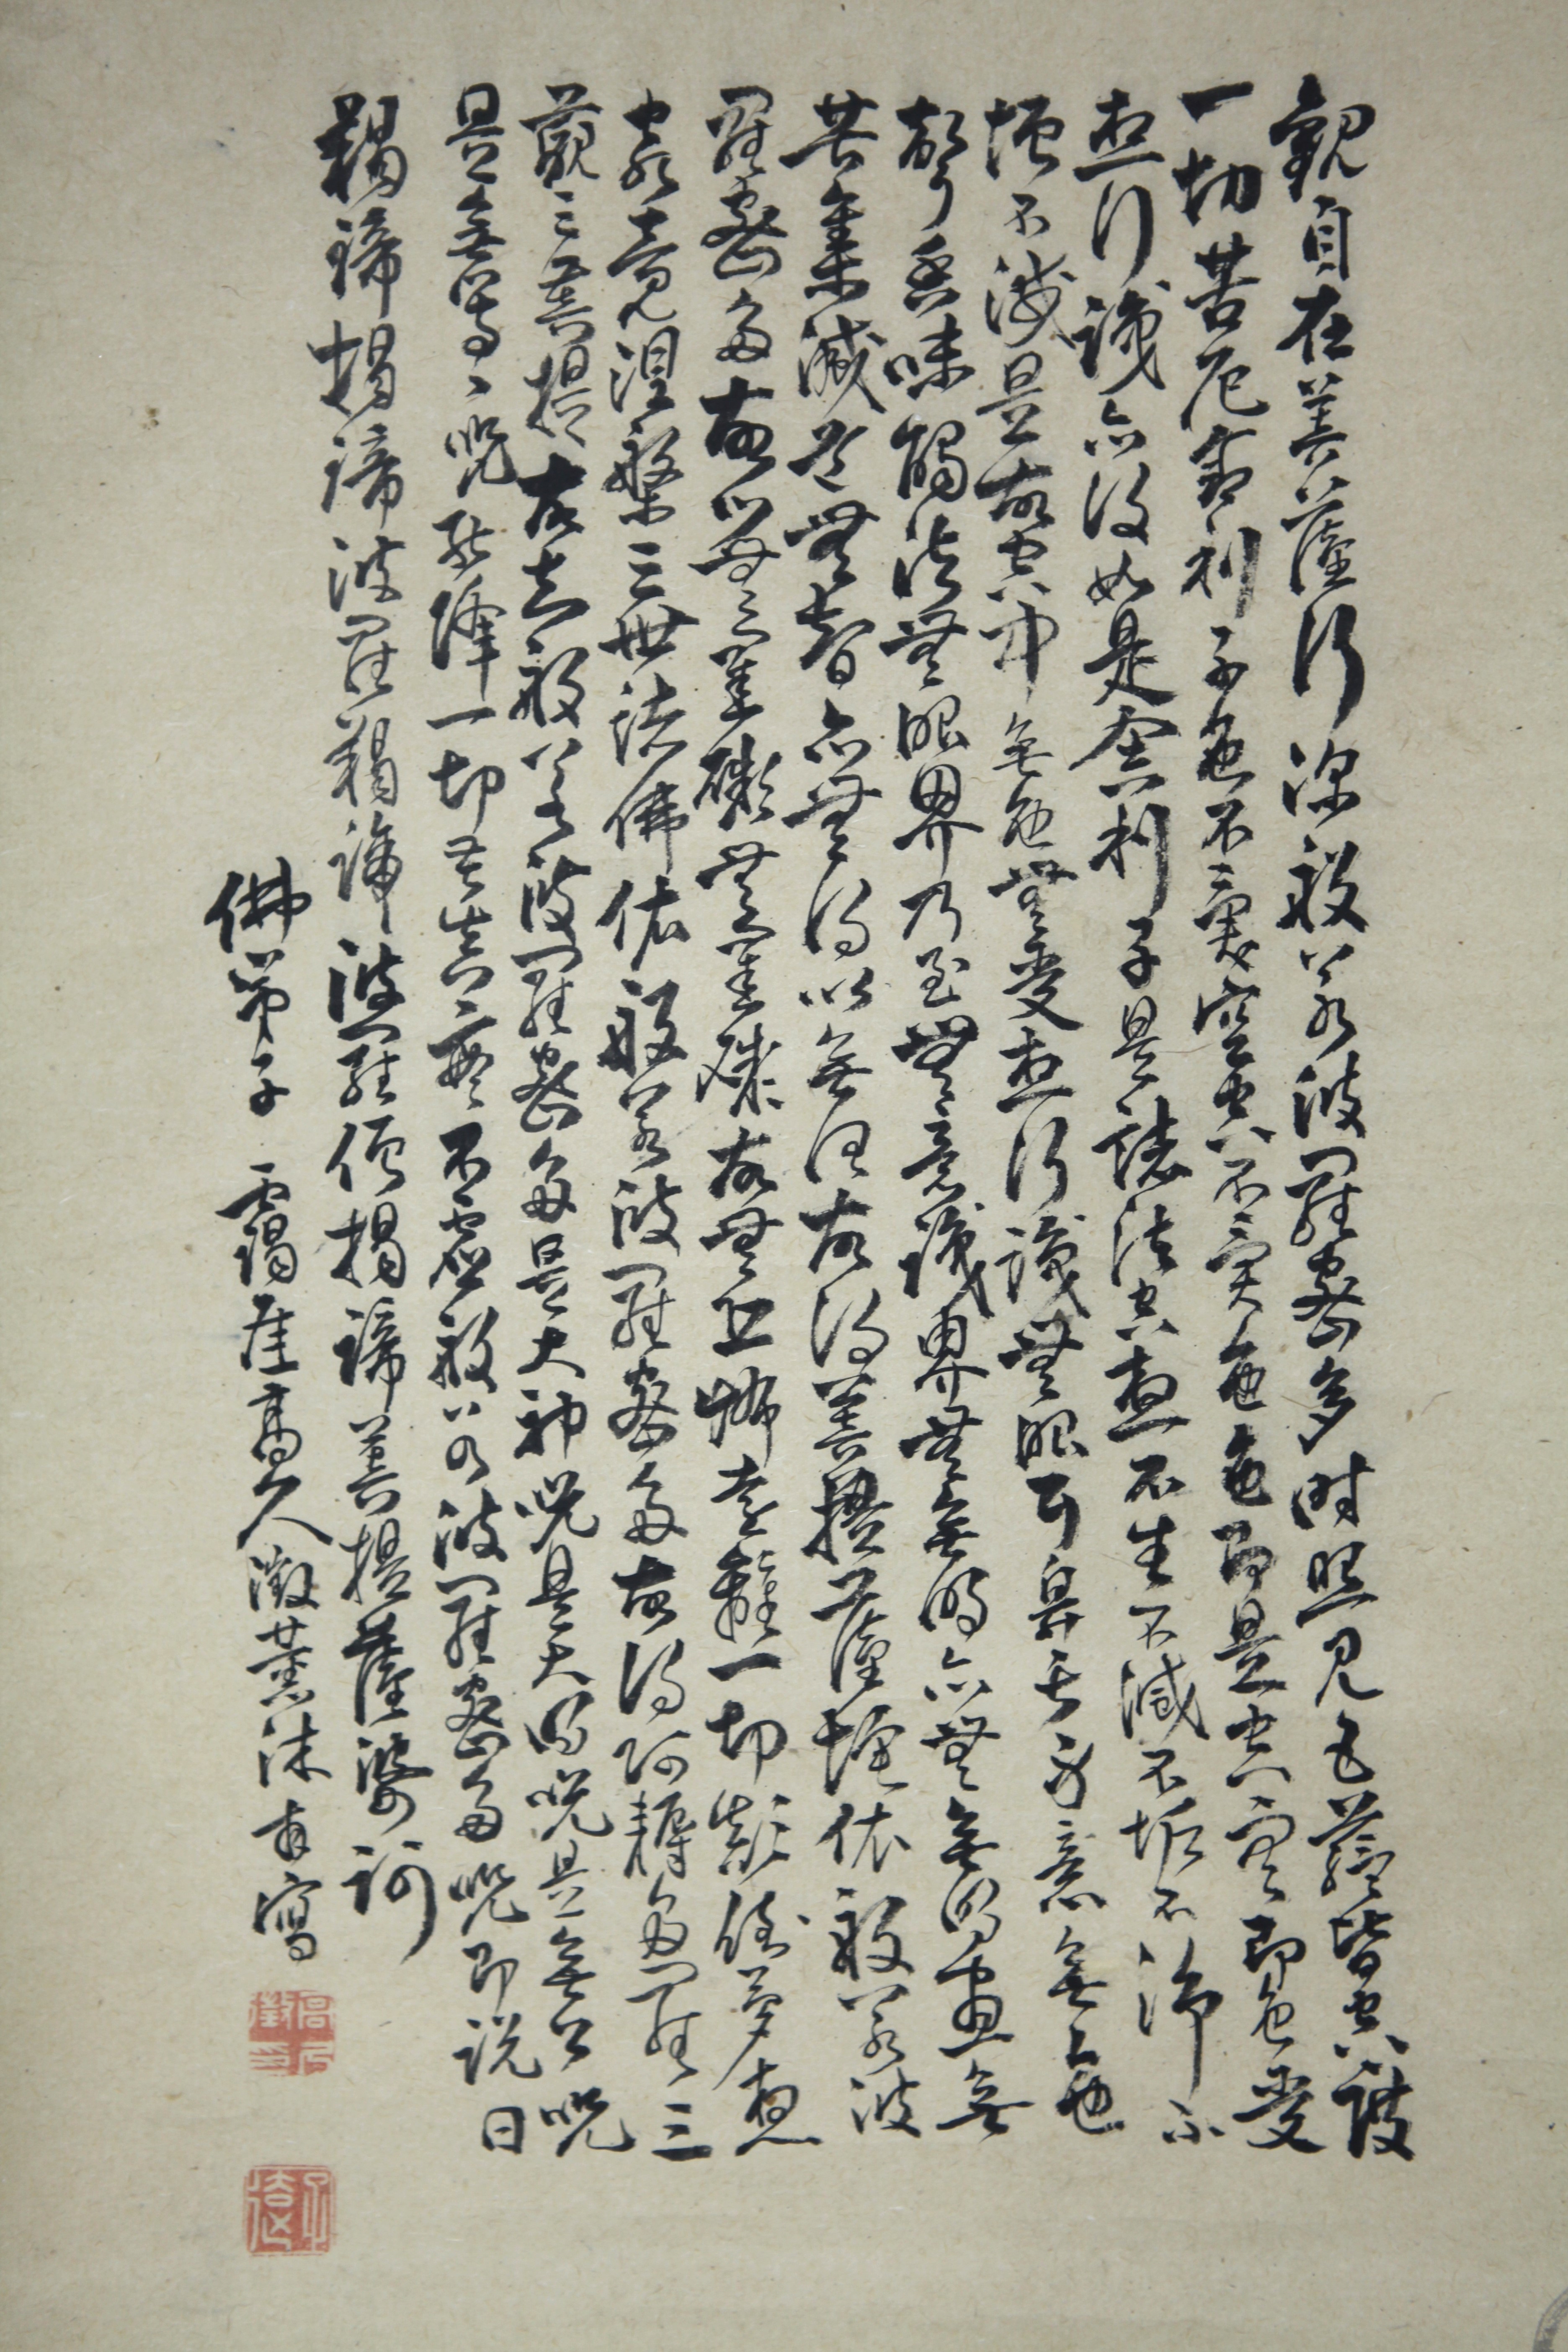 觀自在菩薩行深般若波羅蜜多時照見五蘊皆空度
一切苦厄舍利子色不異空空不異色色即是空空即色受
想行識亦復如是舍利子是諸法空想不生不滅不垢不淨不
增不減是故空中無色無受想行識無眼耳鼻舌身意無色
聲香味觸法無眼界乃至無意識界無無明亦無無明盡無
苦集滅道無智亦無得以無所得故菩提薩埵依般若波
羅蜜多故心無罣礙無罣礙故無有恐怖遠離一切顛倒夢想
究竟涅槃三世諸佛依般若波羅蜜多故得阿耨多羅三
藐三菩提故知般若波羅蜜多是大神咒是大明咒是無上咒
是無等等咒能除一切苦真實不虛般若波羅蜜多咒即說曰
揭諦揭諦波羅揭諦波羅僧揭諦菩提薩婆訶
佛弟子 靄厓高久徵薰沐書寫